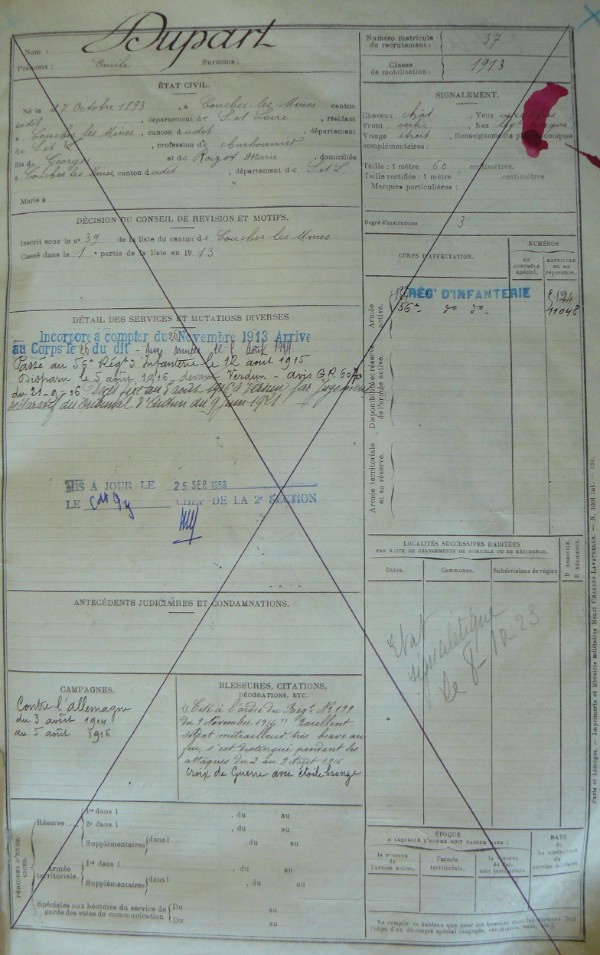 Nom : Dupart
Prénoms : Emile Surnoms :
Numéro matricule du recrutement : 37
Classe de mobilisation : 1913
ÉTAT CIVIL.
Né le 27 Octobre 1893, à Couches les Mines canton
dudit, département de S. et Loire, résidant
à Couches les Mines, canton dudit, département
de S. et L., profession de charbonnier
fils de Georges et de Marie, domiciliés
à Couches les Mines canton dudit, département de S. et L.
Marié à
SIGNALEMENT.
Cheveux Yeux
Front Nez
Visage Renseignements physionomiques
complémentaires :
Taille : 1 mètre 60 centimètres.
Taille rectifiée : 1 mètre centimètres
Marques particulières :
Degré d'instruction : 3
DÉCISION DU CONSEIL DE REVISION ET MOTIFS.
Inscrit sous le n° 39 de la liste du canton de Couches les Mines
Classé dans la 1 partie de la liste en 1913
CORPS D'AFFECTATION.
NUMÉROS
AU CONTRÔLE spécial.
MATRICULE OU AU répertoire.
Armée active.
RÉG' D'INFANTERIE
56e do do
11048
Disponibilité et réserve de l'armée active.
Armée territoriale et sa réserve.
DÉTAIL DES SERVICES ET MUTATIONS DIVERSES
Incorporé à compter du Novembre 1913 Arrivé
au Corps le 26 du dit
Passé au 56e Rég' d'Infanterie le 12 août 1915
Disparu le 5 août 1916 devant Verdun - avis
du 21-9-16
déclaratif du tribunal d'Autun du 9 juin 1921
MIS À JOUR LE 25 SEP 1958
LE CHEF DE LA 2e SECTION
LOCALITÉS SUCCESSIVES HABITÉES
PAR SUITE DE CHANGEMENTS DE DOMICILE OU DE RÉSIDENCE.
Dates. Communes. Subdivisions de région. D DOMICILE. R RÉSIDENCE.
Etat
signalétique
le 8-10-23
ANTÉCÉDENTS JUDICIAIRES ET CONDAMNATIONS.
CAMPAGNES.
Contre l'allemagne
du 3 août 1914
au 5 août 1916
BLESSURES, CITATIONS,
DÉCORATIONS, ETC.
"Cité à l'ordre du Rég' N°
du 9 Novembre 1916" Excellent
soldat mitrailleur très brave au
feu, s'est distingué pendant les
attaques du 2 au 5 Août 1916
Croix de Guerre avec étoile bronze
PÉRIODES D'EXERCICES.
Réserve
1re dans l , du au
2e dans l , du au
Supplémentaires (dans l , du au
Armée territoriale.
1re dans l , du au
Supplémentaires (dans l , du au
Spéciales aux hommes du service de garde des voies de communication.
Du au
Du au
ÉPOQUE
À LAQUELLE L'HOMME DOIT PASSER DANS :
la réserve de l'armée active.
l'armée territoriale.
la réserve de l'armée territoriale.
DATE de la LIBÉRATION du service militaire.
Paris et Limoges. — Imprimerie et librairie militaires Henri Charles-Lavauzelle.